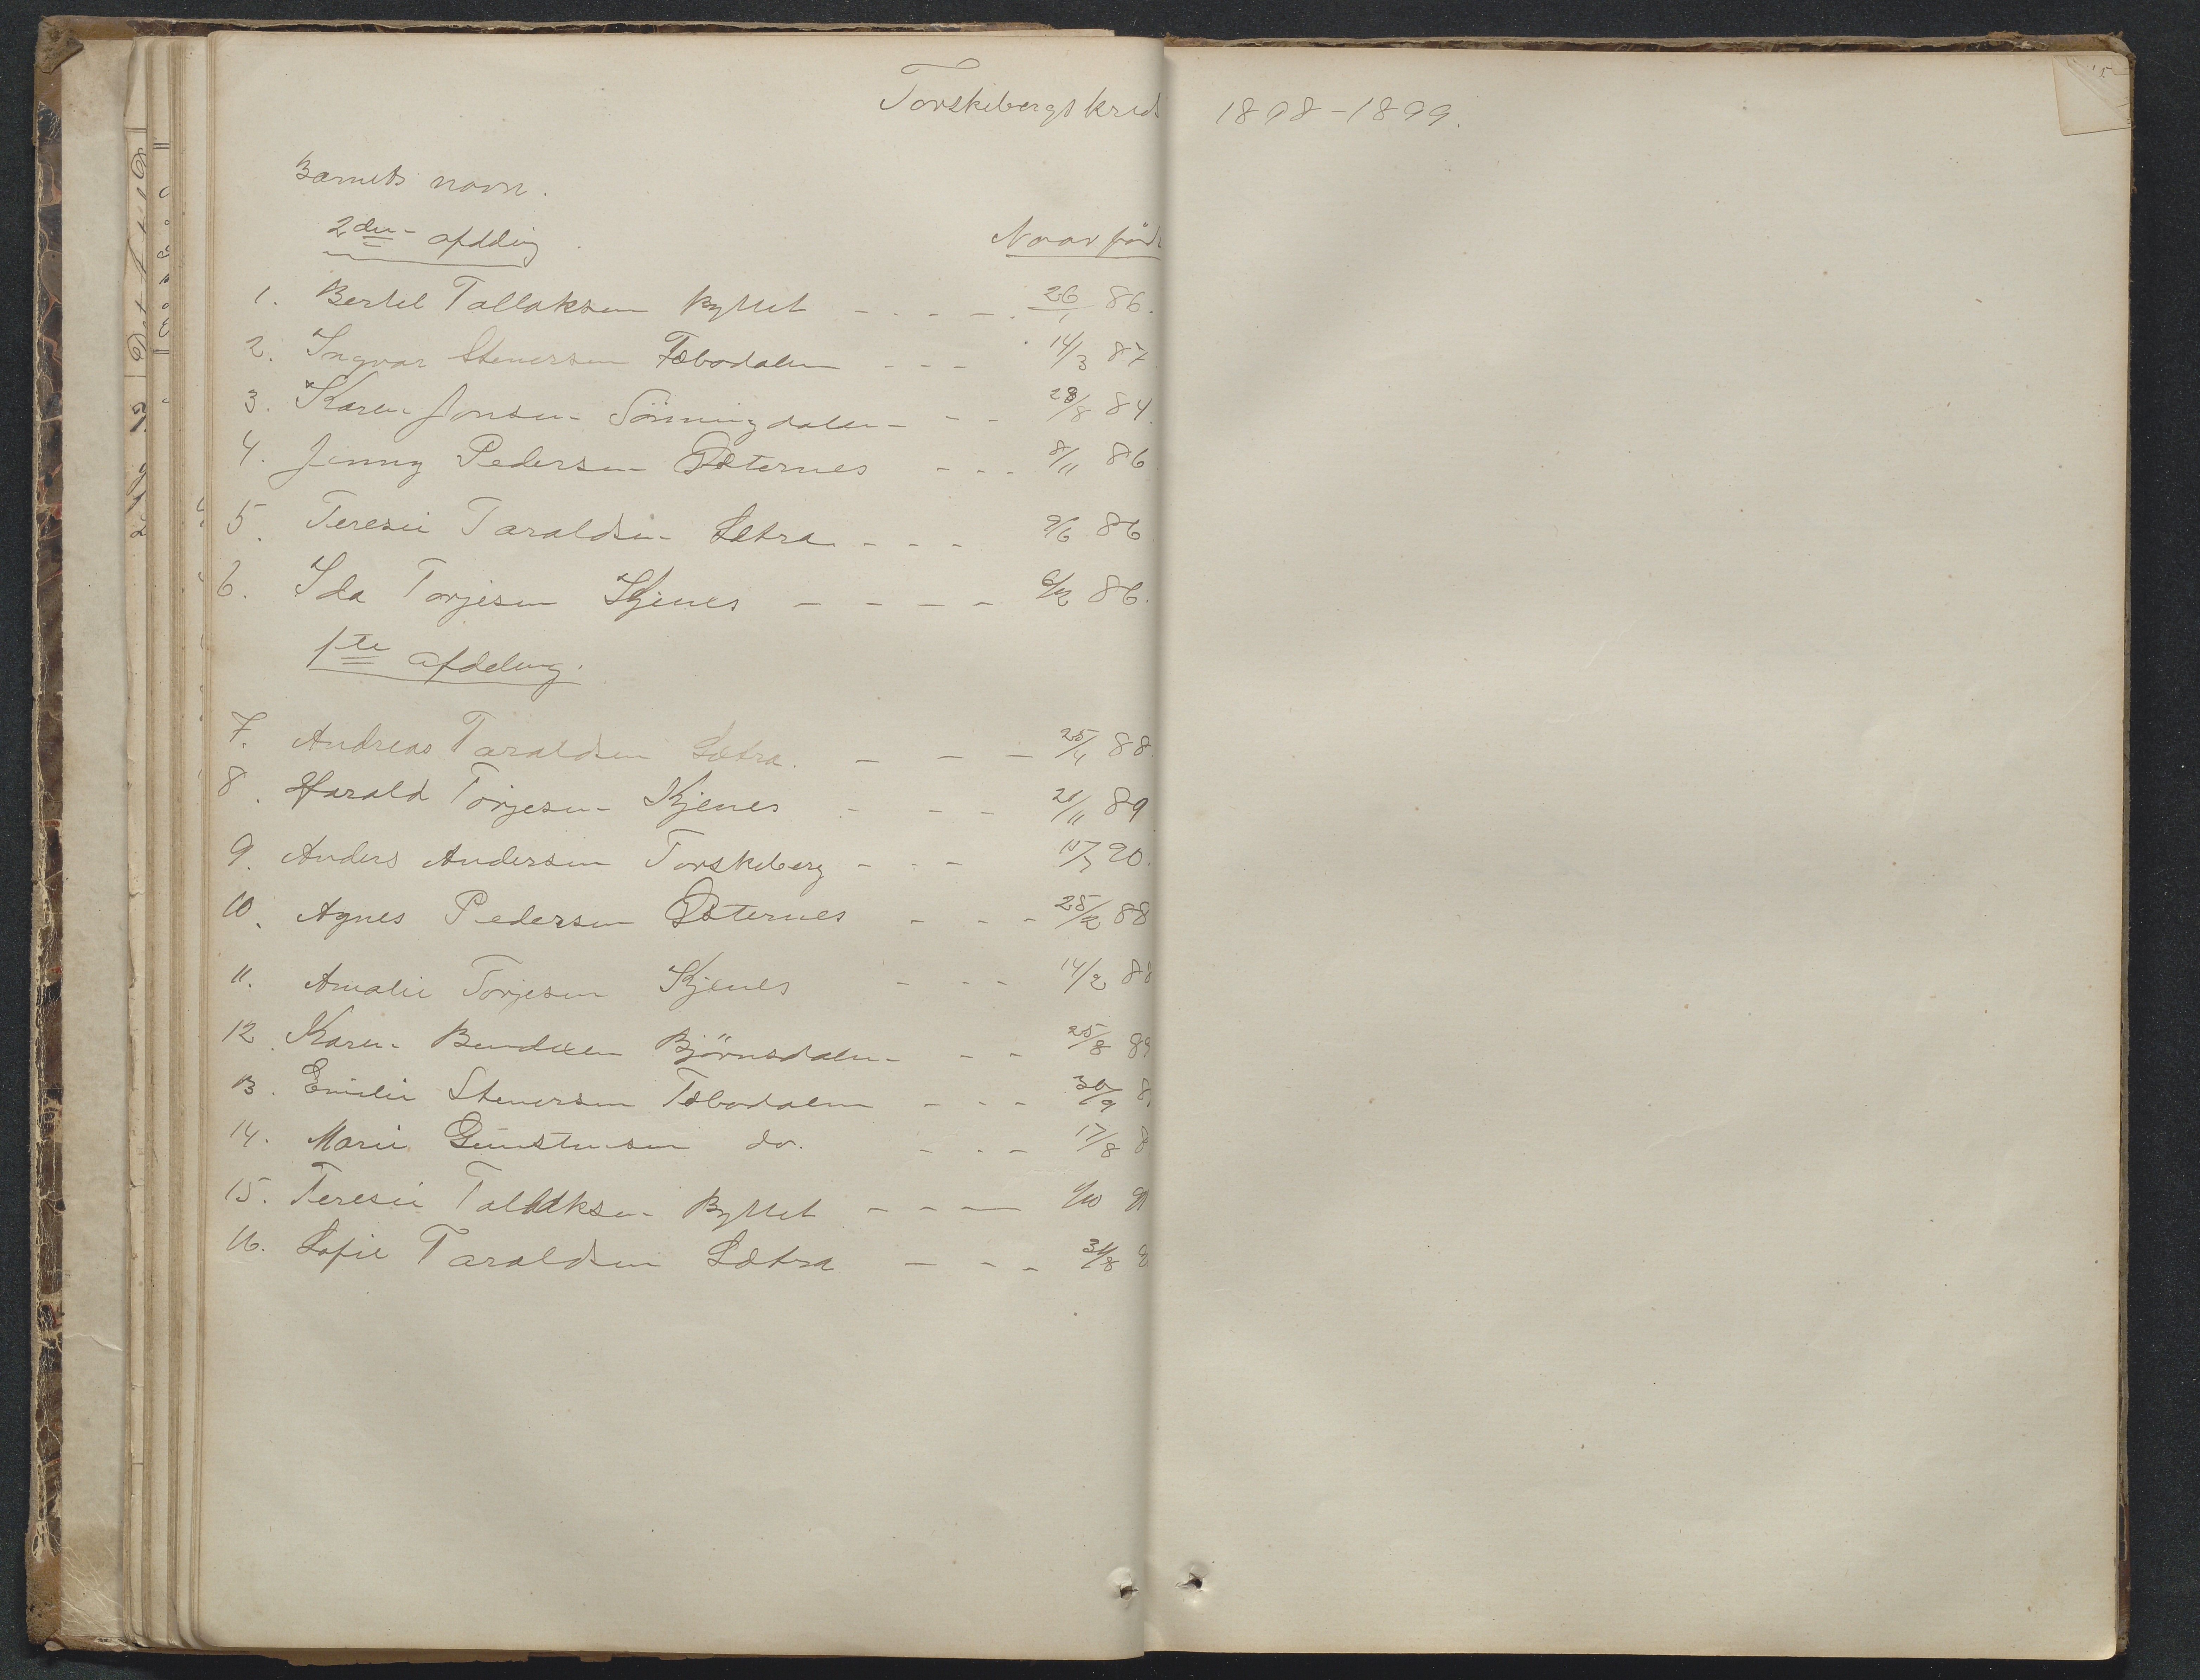 Torskebergs kreds 1898-1899.
Barnets navn.
2den afdeling
Naar født
1. Bertel Tallaksen Byttet - - - - 26/1 86.
2. Ingvar Stenersen Fæbodalen - - - 14/3 87
3. Karen Jonsen Sönningdalen - - 28/8 84.
4. Jenny Pedersen Østernes - - - 8/11 86
5. Teresie Taraldsen Sætra - - - 9/6 86
6. Ida Torjesen Skjenes - - - - 6/12 86.
1ste afdeling.
7. Andreas Taraldsen Sætra. - - - 25/4 88
8. Harald Torjesen Kjenes - - - 21/11 89
9. Anders Andersen Torskeberg - - - 90.
10. Agnes Pedersen Østernes - - - 25/12 88
11. Amalie Torjesen Skjenes - - - 14/2 88
12 Karen Bendixen Björnsdalen - - 25/8 89
13. Emilie Stenersen Fæbodalen - - - 30/9 8
14. Marie Gunstensen do. - - - 17/8 8
15. Teresie Tallaksen Byttet - - - -
16. Sofie Taraldsen Sætra - - - 31/8 8